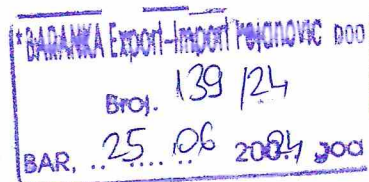 "BARANKA Export-Import Pejanovic DOO
Broj. 139/24
BAR, ..25.....06 2024, god